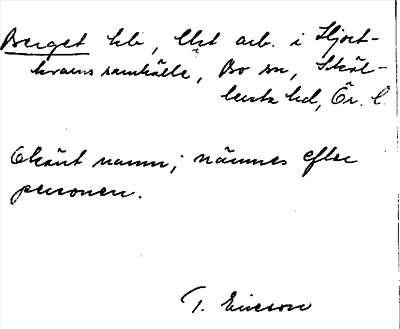 Berget hli, lht arb. i Hjort-
kvarns samhälle, Bo sn, Sköl-
lersta hd, Ör. l.
Okänt namn; nämnes efter
personen.
T. Ericson